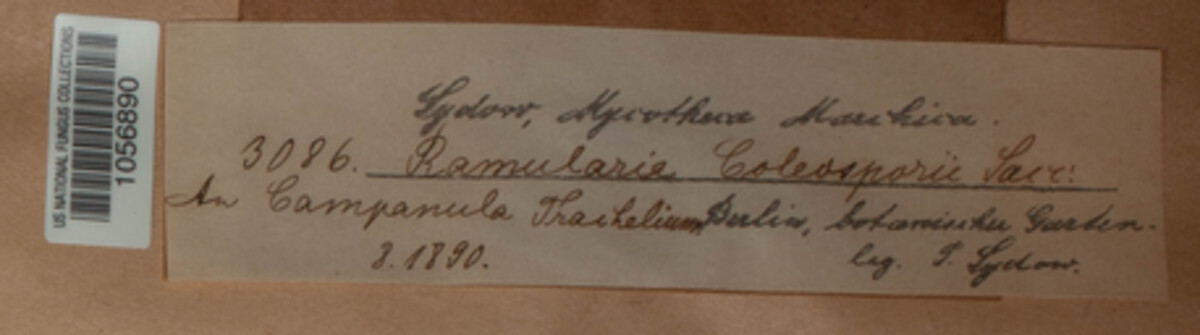 US NATIONAL FUNGUS COLLECTIONS
1056890
Sydow, Mycotheca Marchica.
3086. Ramularia Coleosporii Sacc:
An Campanula Trachelium, Berlin, botanischer Garten.
8. 1890.
leg. P. Sydow.